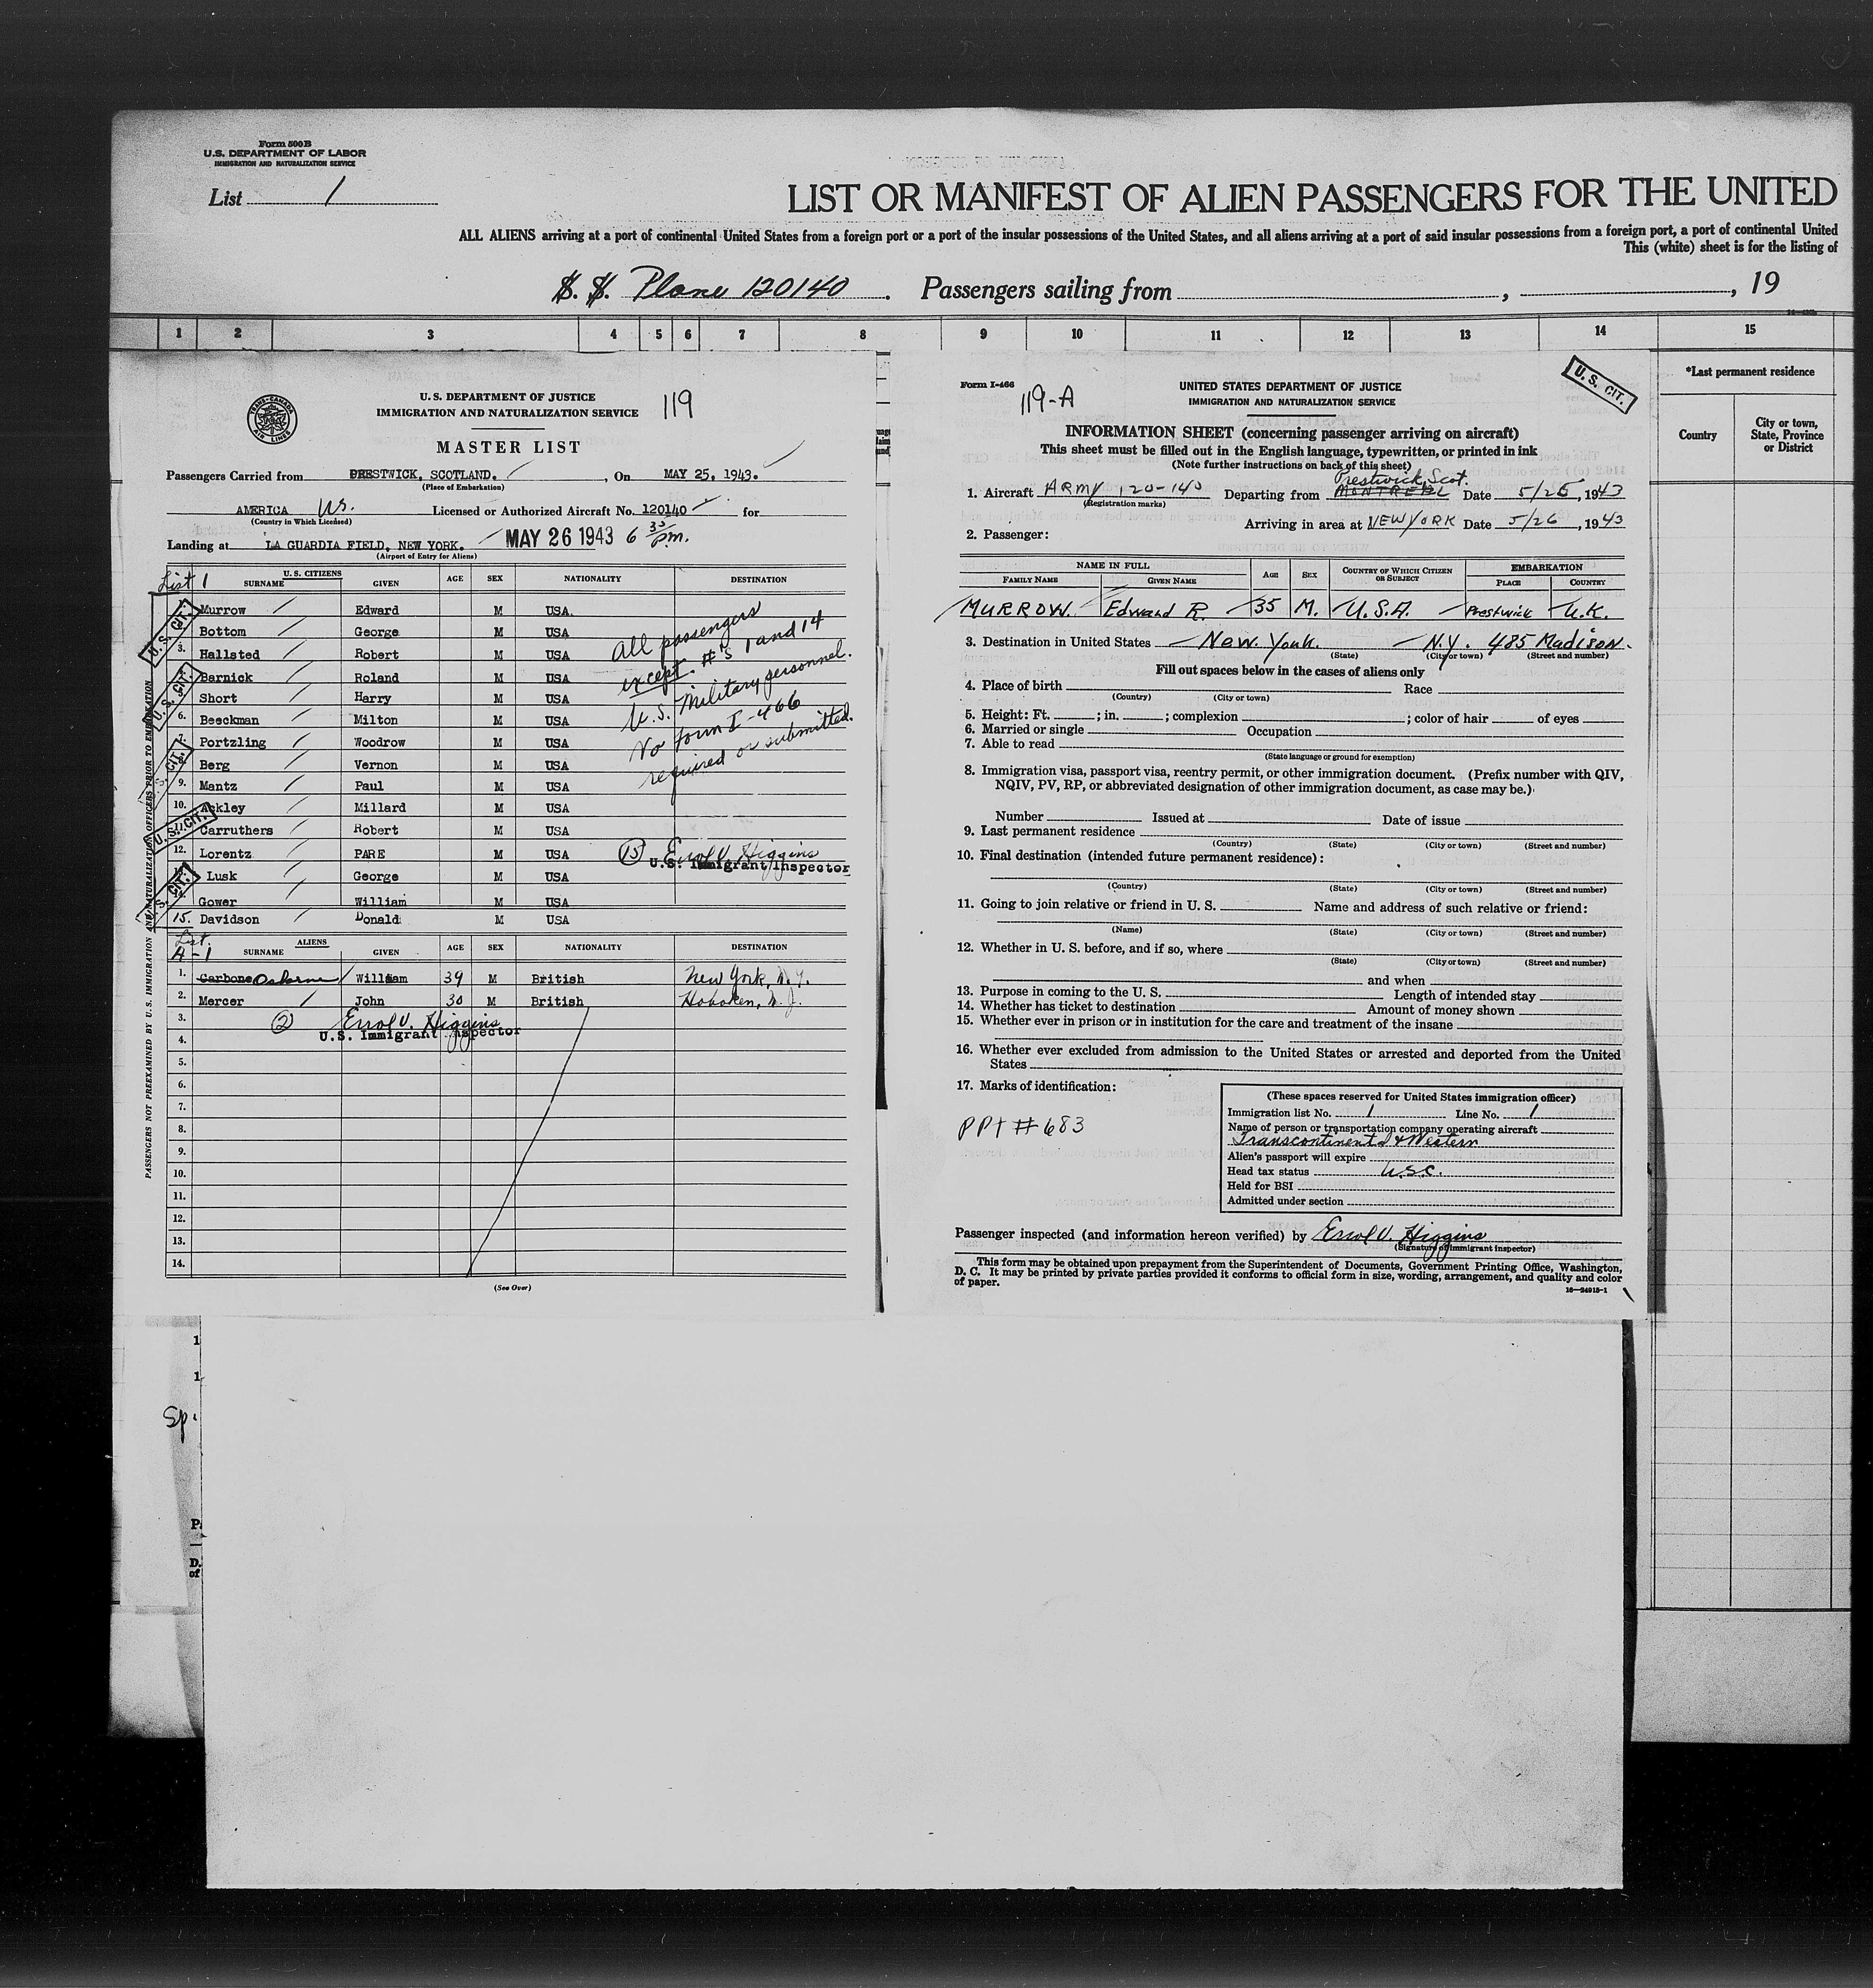 Form 500 B
U.S. DEPARTMENT OF LABOR
IMMIGRATION AND NATURALIZATION SERVICE
List 1
LIST OR MANIFEST OF ALIEN PASSENGERS FOR THE UNITED
ALL ALIENS arriving at a port of continental United States from a foreign port or a port of the insular possessions of the United States, and all aliens arriving at a port of said insular possessions from a foreign port, a port of continental United
This (white) sheet is for the listing of
S. S. Plane 120140 . Passengers sailing from , , 19
1 2 3 4 5 6 7 8 9 10 11 12 13 14 15
*Last permanent residence
Country
City or town, State, Province or District
TRANS-CANADA AIR LINES
U. S. DEPARTMENT OF JUSTICE
IMMIGRATION AND NATURALIZATION SERVICE
119
MASTER LIST
Passengers Carried from PRESTWICK, SCOTLAND. , On MAY 25. 1943.
(Place of Embarkation)
AMERICA US. Licensed or Authorized Aircraft No. 120140 for
(Country in Which Licensed)
Landing at LA GUARDIA FIELD, NEW YORK. MAY 26 1943 6 30 P.M.
(Airport of Entry for Aliens)
List 1
U.S. CITIZENS
SURNAME GIVEN AGE SEX NATIONALITY DESTINATION
Murrow Edward M USA.
Bottom George M USA
3. Hallsted Robert M USA
Barnick Roland M USA
Short Harry M USA
6. Beeckman Milton M USA
7. Portzling Woodrow M USA
Berg Vernon M USA
9. Mantz Paul M USA
10. Ackley Millard M USA
Carruthers Robert M USA
12. Lorentz PARE M USA
Lusk George M USA
Gower William M USA
15. Davidson Donald M USA
U. S. CIT.
U. S. CIT.
U. S. CIT.
U. S. CIT.
U. S. CIT.
All passengers
except #'s 1 and 14
U.S. Military personnel.
No form I-466
required or submitted.
15 Errol V. Higgins
U.S. Immigrant Inspector
PASSENGERS NOT PREEXAMINED BY U. S. IMMIGRATION AND NATURALIZATION OFFICERS PRIOR TO EMBARKATION
List A-1
ALIENS
SURNAME GIVEN AGE SEX NATIONALITY DESTINATION
1. Carbone Osborne William 39 M British New York, N.Y.
2. Mercer John 30 M British Hoboken, N.J.
3.
2 Errol V. Higgins
U.S. Immigrant Inspector
4.
5.
6.
7.
8.
9.
10.
11.
12.
13.
14.
(See Over)
Form I-466
119-A
U. S. CIT.
UNITED STATES DEPARTMENT OF JUSTICE
IMMIGRATION AND NATURALIZATION SERVICE
INFORMATION SHEET (concerning passenger arriving on aircraft)
This sheet must be filled out in the English language, typewritten, or printed in ink
(Note further instructions on back of this sheet)
Prestwick, Scot.
1. Aircraft ARMY 120-140 Departing from MONTREAL Date 5/25, 1943
(Registration marks)
Arriving in area at NEW YORK Date 5/26, 1943
2. Passenger:
NAME IN FULL
FAMILY NAME GIVEN NAME AGE SEX COUNTRY OF WHICH CITIZEN OR SUBJECT EMBARKATION PLACE COUNTRY
MURROW. Edward R. 35 M. U.S.A. Prestwick U.K.
3. Destination in United States New York. N.Y. 485 Madison.
(State) (City or town) (Street and number)
Fill out spaces below in the cases of aliens only
4. Place of birth Race
(Country) (City or town)
5. Height: Ft. ; in. ; complexion ; color of hair of eyes
6. Married or single Occupation
7. Able to read
(State language or ground for exemption)
8. Immigration visa, passport visa, reentry permit, or other immigration document. (Prefix number with QIV,
NQIV, PV, RP, or abbreviated designation of other immigration document, as case may be.)
Number Issued at Date of issue
9. Last permanent residence
(Country) (State) (City or town) (Street and number)
10. Final destination (intended future permanent residence):
(Country) (State) (City or town) (Street and number)
11. Going to join relative or friend in U. S. Name and address of such relative or friend:
(Name) (State) (City or town) (Street and number)
12. Whether in U. S. before, and if so, where
(State) (City or town) (Street and number)
and when
13. Purpose in coming to the U. S. Length of intended stay
14. Whether has ticket to destination Amount of money shown
15. Whether ever in prison or in institution for the care and treatment of the insane
16. Whether ever excluded from admission to the United States or arrested and deported from the United
States
17. Marks of identification:
PPt # 683
(These spaces reserved for United States immigration officer)
Immigration list No. 1 Line No. 1
Name of person or transportation company operating aircraft
Transcontinental & Western
Alien's passport will expire
Head tax status U.S.C.
Held for BSI
Admitted under section
Passenger inspected (and information hereon verified) by Errol V. Higgins
(Signature of immigrant inspector)
This form may be obtained upon prepayment from the Superintendent of Documents, Government Printing Office, Washington,
D. C. It may be printed by private parties provided it conforms to official form in size, wording, arrangement, and quality and color
of paper.
16—24915-1
Sp.
P.
D.
of